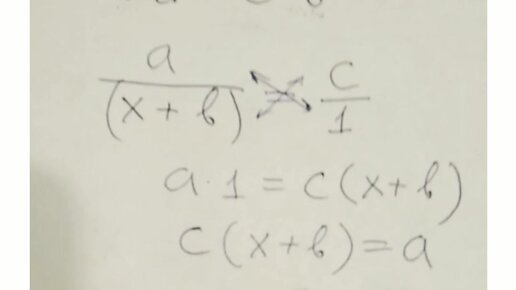 a/(x+b) = c/1
a·1=c(x+b)
c(x+b)=a